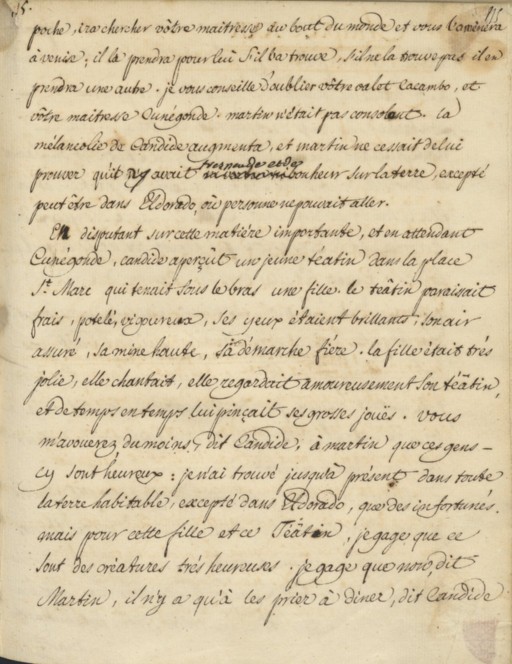 poche, ira chercher vôtre maitresse au bout du monde et vous l'amènera
à venise; il la prendra pour lui s'il la trouve, s'il ne la trouve pas il en
prendra une autre. je vous conseille d'oublier vôtre valet Cacambo, et
vôtre maitresse Cunégonde. martin n'était pas consolant. la
mélancolie de Candide augmenta, et martin ne cessait de lui
prouver qu'il y avait peu de vertu et peu de bonheur sur la terre, excepté
peut être dans Eldorado, où personne ne pouvait aller.
En disputant sur cette matière importante, et en attendant
Cunégonde, candide aperçut un jeune téatin dans la place
St. Marc qui tenait sous le bras une fille. le teâtin paraisait
frais, potelé, vigoureux, ses yeux étaient brillants; son air
assuré, sa mine haute, sa démarche fière. la fille était très
jolie, elle chantait, elle regardait amoureusement son teätin,
et de temps en temps lui pinçait ses grosses joües. vous
m'avouerez du moins, dit Candide, à martin que ces gens -
cy sont heureux: je n'ai trouvé jusqu'à présent dans toute
la terre habitable, excepté dans Eldorado, que des infortunés.
mais pour cette fille et ce Teätin, je gage que ce
sont des créatures très heureuses. je gage que non, dit
Martin, il n'y a qu'à les prier à diner, dit Candide